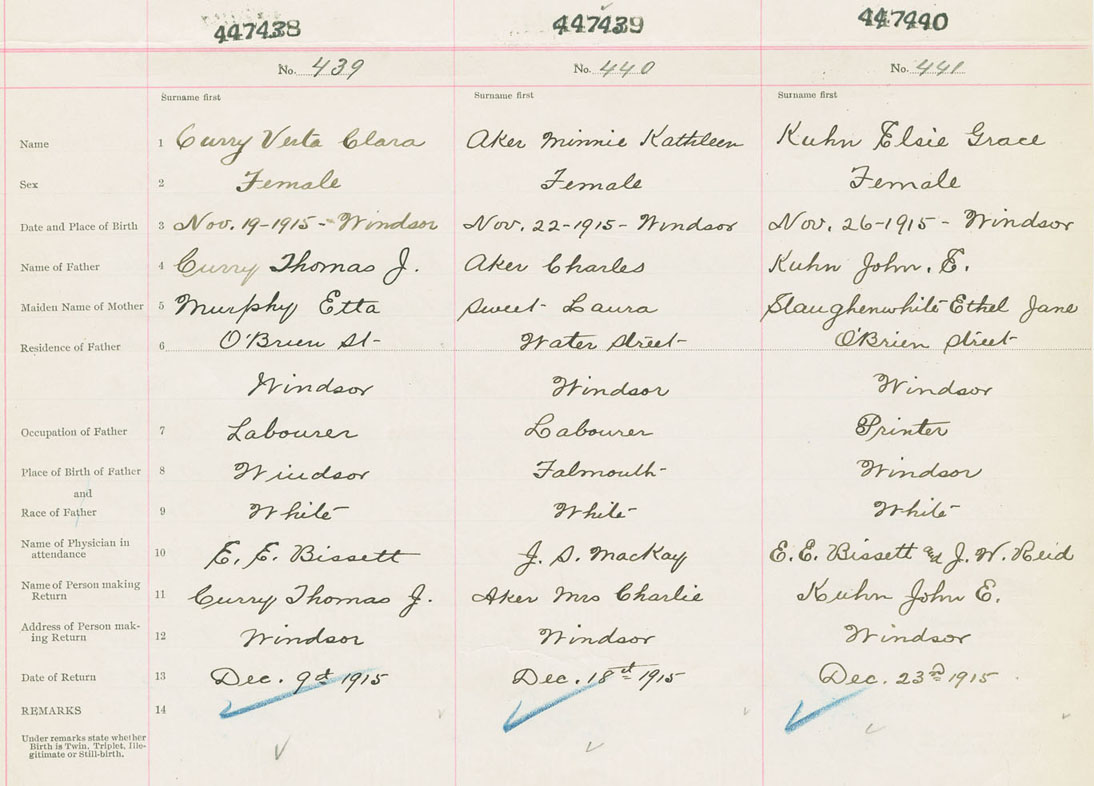 447438 447439 447440
No. 439 No. 440 No. 441
Surname first Surname first Surname first
Name 1 Curry Verta Clara Aker Minnie Kathleen Kuhn Elsie Grace
Sex 2 Female Female Female
Date and Place of Birth 3 Nov. 19-1915 - Windsor Nov. 22-1915 - Windsor Nov. 26-1915 - Windsor
Name of Father 4 Curry Thomas J. Aker Charles Kuhn John. E.
Maiden Name of Mother 5 Murphy Etta Sweet Laura Slaughenwhite Ethel Jane
Residence of Father 6 O'Brien St Water Street O'Brien Street
Windsor Windsor Windsor
Occupation of Father 7 Labourer Labourer Printer
Place of Birth of Father 8 Windsor Falmouth Windsor
and
Race of Father 9 White White White
Name of Physician in
attendance 10 E. E. Bissett J. S. MacKay E. E. Bissett and J. W. Reid
Name of Person making
Return 11 Curry Thomas J. Aker Mrs Charlie Kuhn John E.
Address of Person mak-
ing Return 12 Windsor Windsor Windsor
Date of Return 13 Dec. 9th 1915 Dec. 18th 1915 Dec. 23rd 1915
REMARKS 14
Under remarks state whether
Birth is Twin, Triplet, Ille-
gitimate or Still-birth.